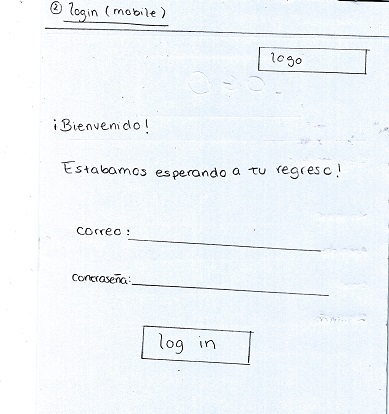 ② login (mobile)
logo
¡Bienvenido!
Estabamos esperando a tu regreso!
correo:
contraseña:
log in